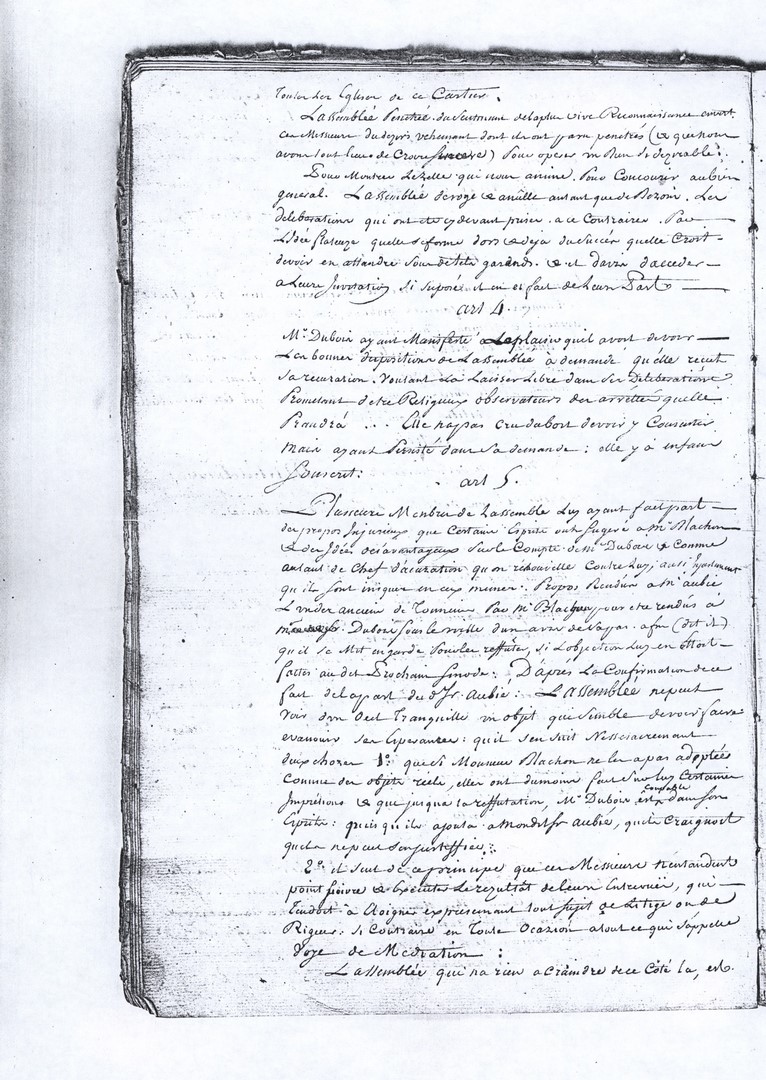 toutes les Eglises de ce Cartier.
L'assemblée Penetrée du sentiment de la plus vive Reconnaissance envert
ces Messieurs du dezirs vehemant dont ils ont paru penetrés (& que nous
avons tout lieu de Croire sincere) Pour operer un Bien si dezirable:
Pour Montrer Le zelle qui nous anime. Pour Concourir au bien
general. L'assemblée deroge & anulle autant que de Bezoin. Les
deliberations qui ont ete cy devant prises. a ce Contraire. Par
L'idée flateuze quelle se forme dors & deja du succés quelle Croit
devoir en attandre sous de tels garands. & et davis d'acceder
a Leurs Invitation si suposé et en es fait de Leurs Part
art 4
Mr. Dubois ayant Manifesté Le plaisir quil avoit de voir
Les bonnes dispositions de L'assemblée à demandé quelle recut
sa recusation. Voulant La Laisser Libre dans ses deliberations
Prometant detre Religieux observateurs des arrettés quelle
Prandrá ... Elle na pas cru dabort devoir y Consentir
mais ayant Persisté dans sa demande: elle y à enfain
souscrit:
art 5.
Plusieurs Menbres de L'assemblé Luy ayant fait part
des propos Injurieux que Certains Esprits ont sugeré a Mr Blachon
& des Idées desavantageux sur le Compte de Mr Dubois & Comme
autant de Chef d'acuzation qu'on renouvelle Contre Luy, aussi Injustement
qu'ils sont iniques en eux memes. Propos Rendus a Mr aubié
L'un des anciens de Tonneins Par Mr Blachon pour etre rendus à
Dubois sous le voille d'un avis de sa pas. afin (dit il)
qu'il se Mit en garde pour les reffuter, si L'objection Luy en ettoit
faites au dit Prochain sinode: D'áprés La Confirmation de ce
fait de la part du d. Sr. Aubié. L'assemblée ne peut
voir d'un oeil Tranquille un objet que semble devoir faire
evanouir ses Esperances: qu'il s'en suit Nessecairement
deux chozes 1o. que si Monsieur Blachon ne les a pas adoptées
comme des objets réels, elles ont dumoins fait sur luy Certaines
Impretions & que jusqua la reffutation, Mr Dubois est coupable dans son
Esprit: puis qu'il ajouta a mondit Sr aubié, qu'il Craignoit
qu'il ne peut s'en justiffier:
2o. il suit de ce principe que ces Messieurs n'entandent
point suivre & Executer Le rezultat de leurs Entrevüe, qui
Tendoit à Eloigner expressement tout sujet de Litige ou de
Rigueur si Contraire en Toute Ocazion a tout ce qui s'appelle
Voye de Mediation :
L'assemblée qui n'a rien a Craindre de ce Côté la, est.